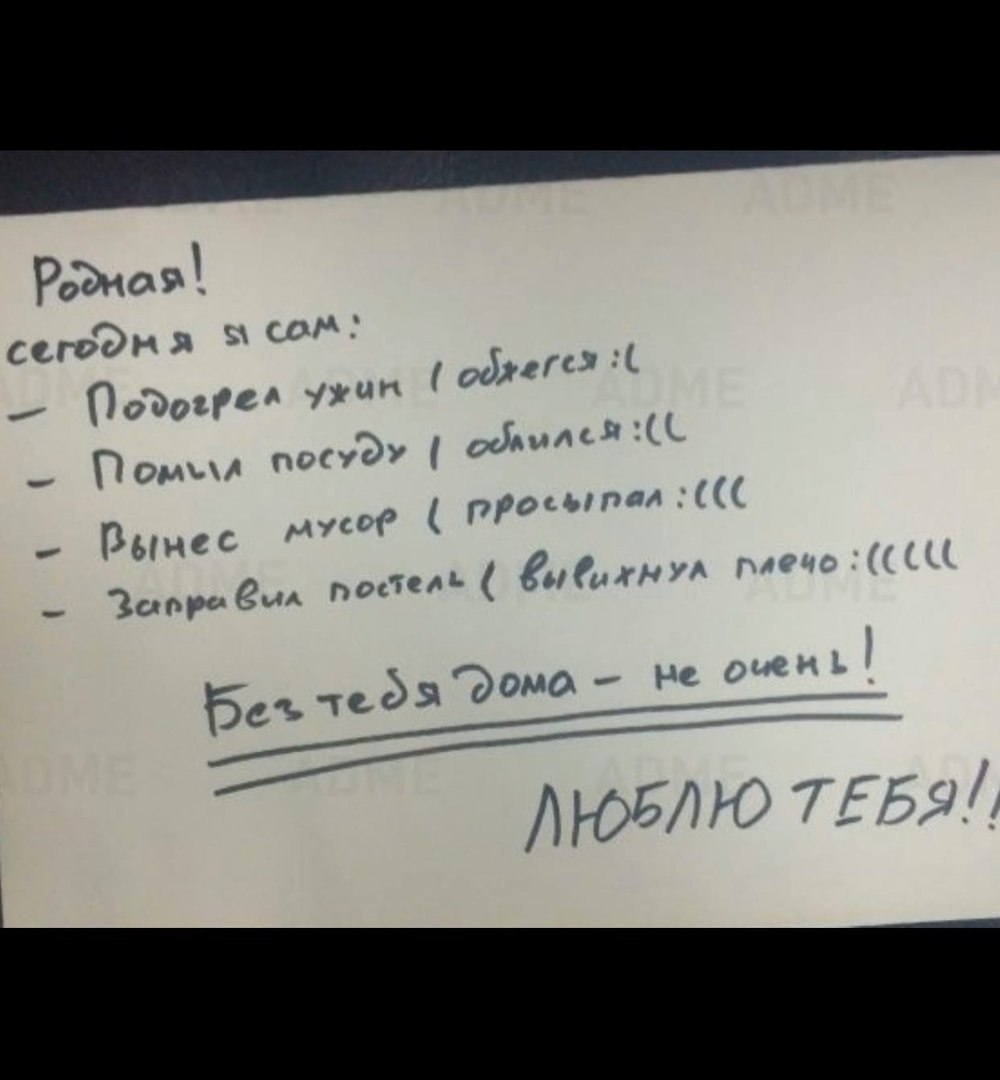 Родная!
сегодня я сам:
- Подогрел ужин ( обжегся :(
- Помыл посуду ( облился :((
- Вынес мусор ( просыпал :(((
- Заправил постель ( вывихнул плечо :(((((
Без тебя дома - не очень!
ЛЮБЛЮ ТЕБЯ!!
ADME